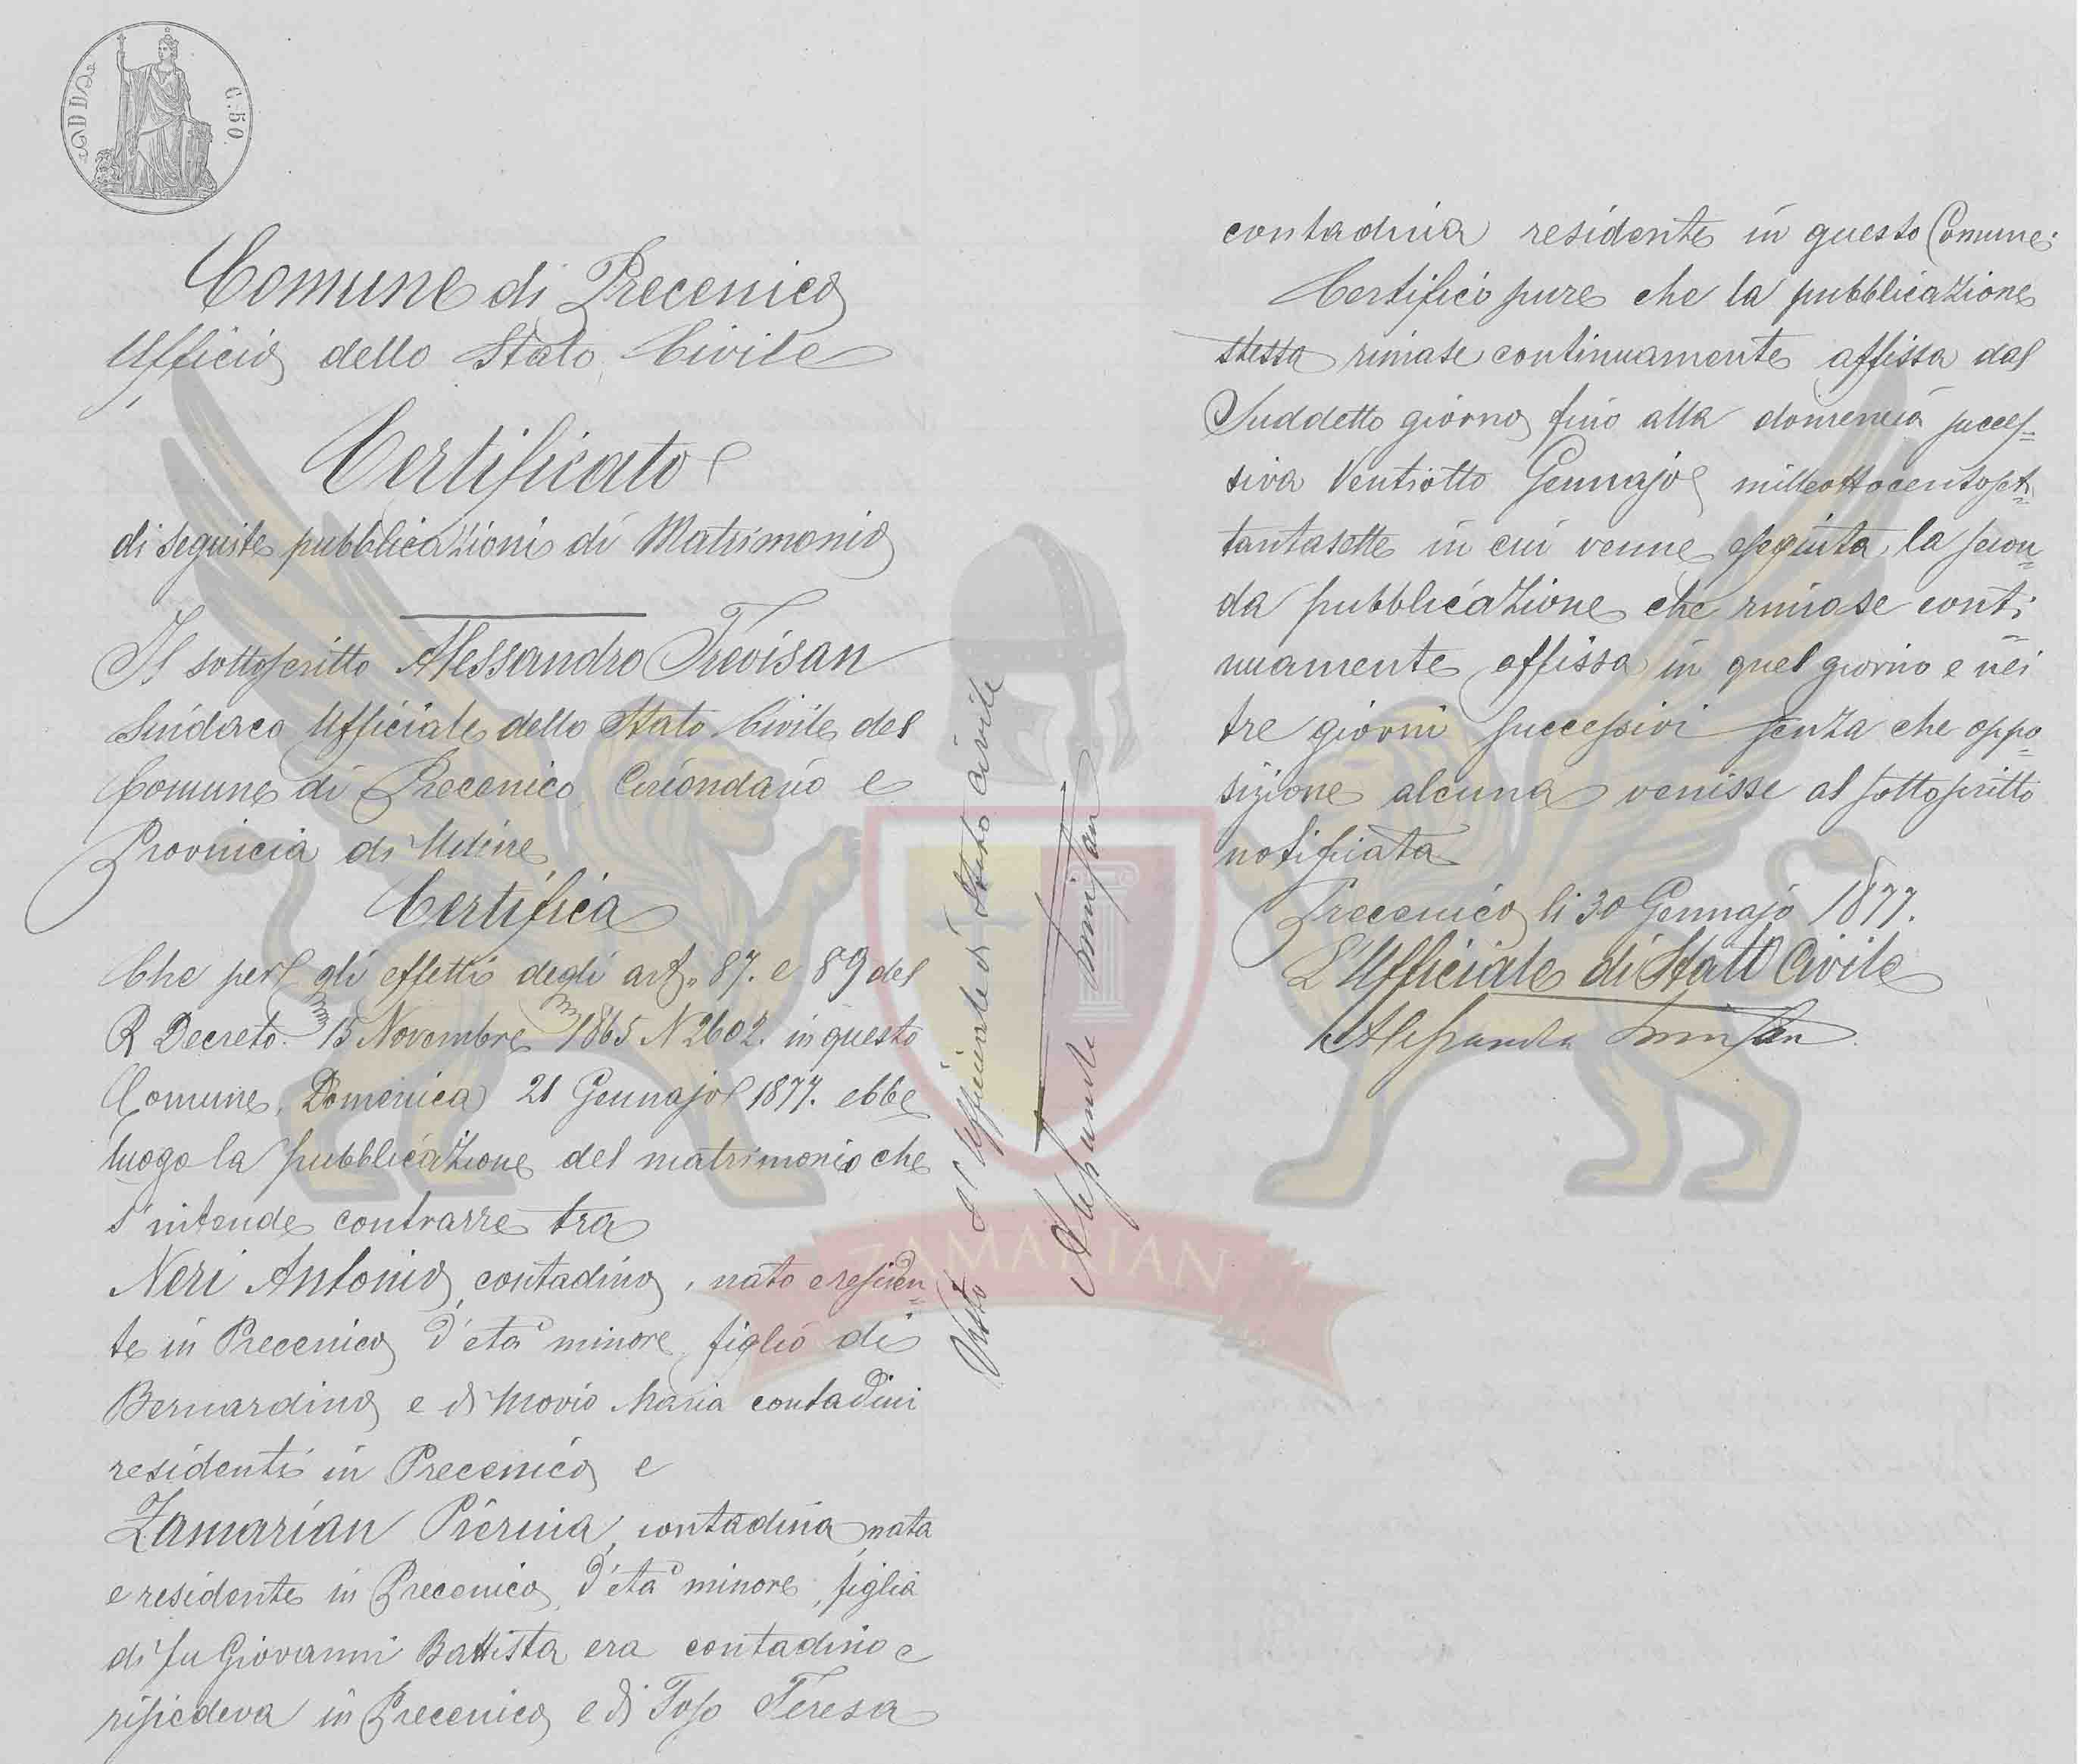 C. 50.
Comune di Precenico
Ufficio dello Stato Civile
Certificato
di seguite pubblicazioni di Matrimonio
Il sottoscritto Alessandro Trevisan
Sindaco Ufficiale dello Stato Civile del
Comune di Precenico Circondario e
Provincia di Udine
Certifica
Che per gli effetti degli art. 87. e 89 del
R Decreto 15 Novembre 1865 N 2602. in questo
Comune, Domenica 21 Gennajo 1877. ebbe
luogo la pubblicazione del matrimonio che
s'intende contrarre tra
Neri Antonio, contadino, nato e residen=
te in Precenico d'età minore, figlio di
Bernardino e di Movio Maria contadini
residenti in Precenico e
Zamarian Pierina, contadina nata
e residente in Precenico, d'età minore, figlia
di fu Giovanni Battista era contadino e
risiedeva in Precenico e di Toso Teresa
Visto L'Ufficiale di Stato Civile
Alessandro Trevisan
contadina residente in questo Comune.
Certifico pure che la pubblicazione
stessa rimase continuamente affissa dal
Suddetto giorno fino alla domenica succes=
siva Ventiotto Gennajo milleottocentoset=
tantasette in cui venne eseguita la secon=
da pubblicazione che rimase conti=
nuamente affissa in quel giorno e nei
tre giorni successivi senza che oppo=
sizione alcuna venisse al sottoscritto
notificata
Precenico li 30 Gennajo 1877.
L'Ufficiale di Stato Civile
Alessandro Trevisan
ZAMARIAN